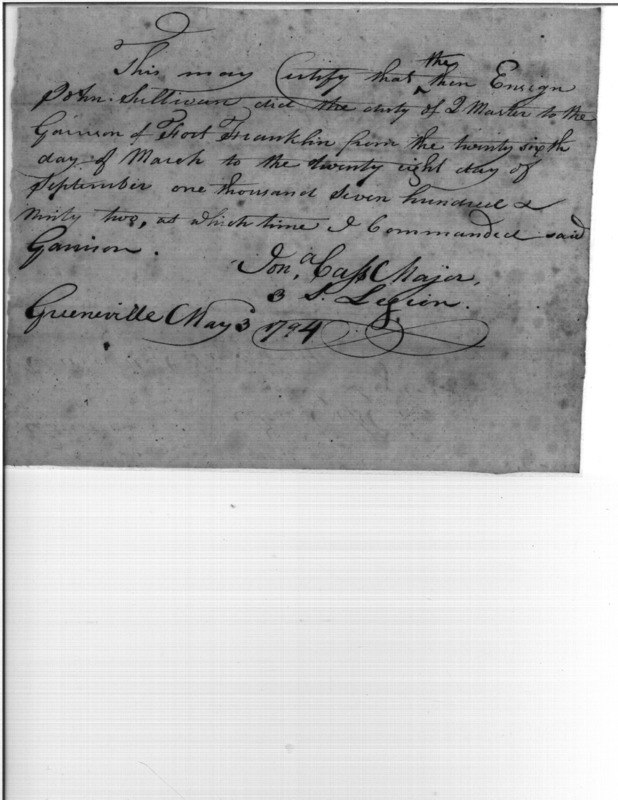 This may Certify that the then Ensign
John Sullivan did the duty of Q Master to the
Garrison of Fort Franklin from the twenty sixth
day of March to the twenty eight day of
September one thousand seven hundred &
ninty two, at which time I Commanded said
Garrison.
Jona Cass Major,
3 S. Legion.
Greeneville May 3 1794